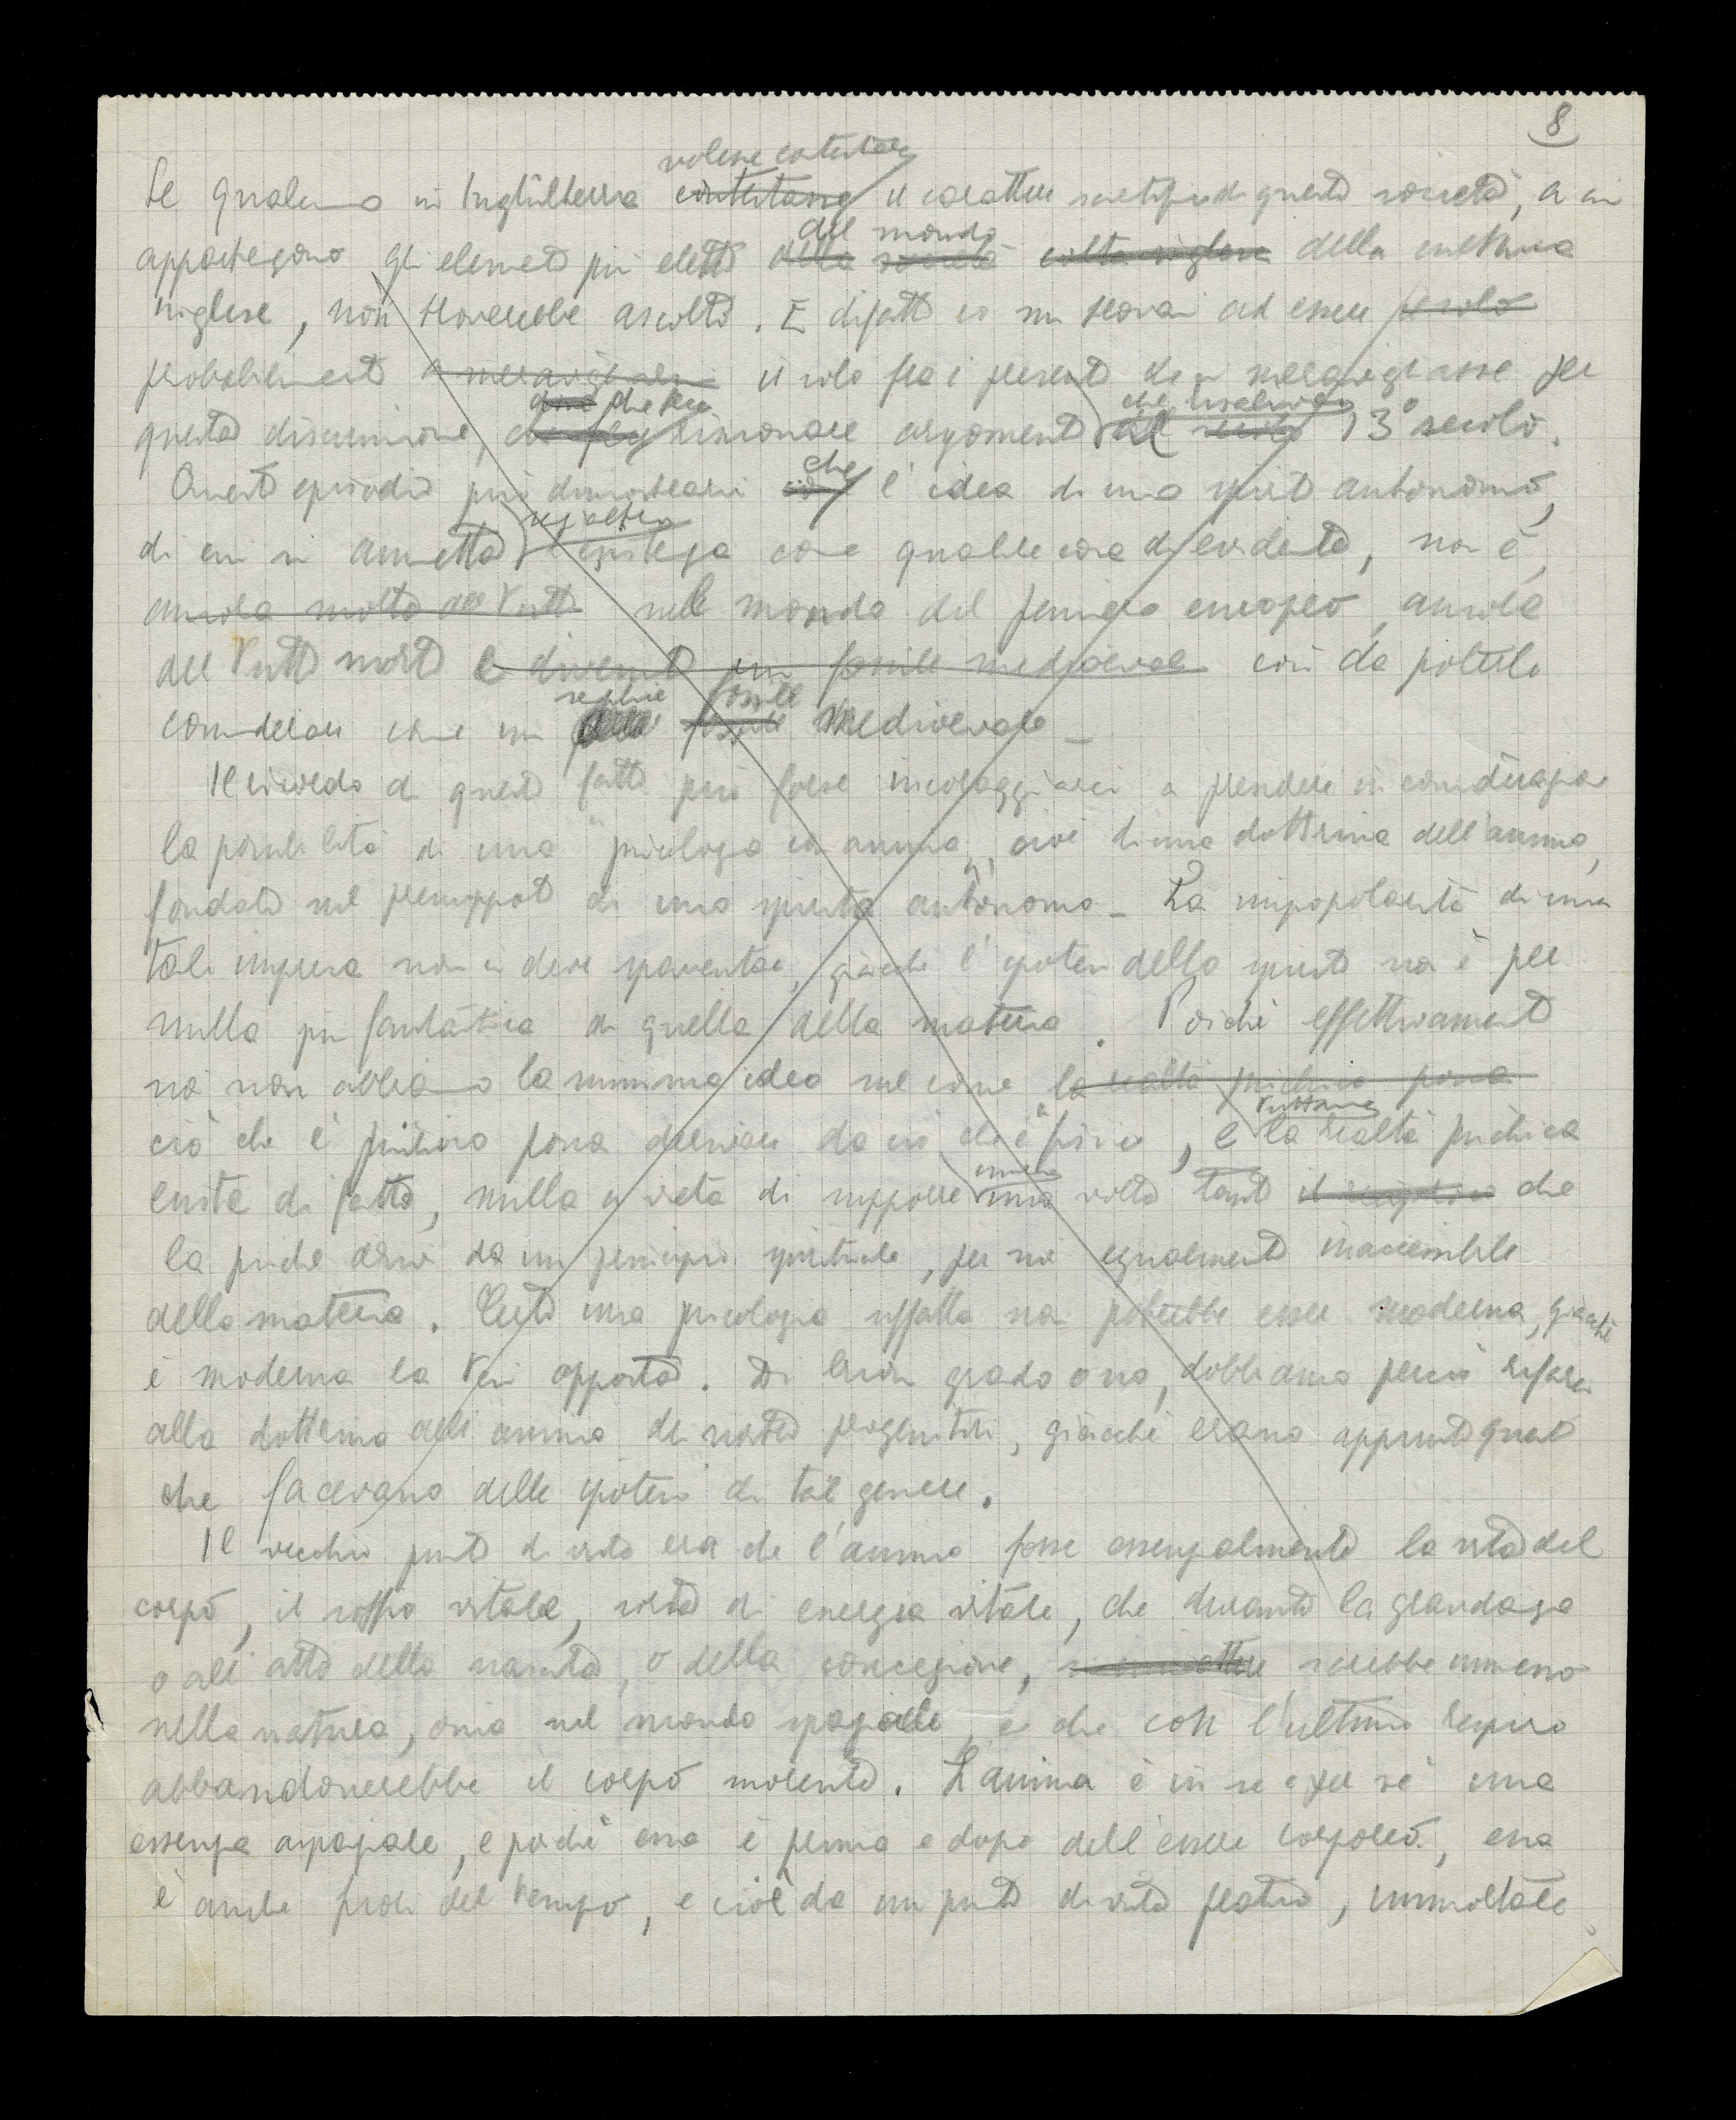 8
volesse contestare
Se qualcuno in Inghilterra contestasse il carattere scientifico di questa società, a cui
del mondo
appartengono gli elementi più eletti della società colta inglese della cultura
inglese, non troverebbe ascolto. E difatti io mi trovai ad essere
probabilmente a meravigliarmi il solo fra i presenti che si meravigliasse per
che fece che risalivano
questa discussione, risuonare argomenti del secolo 13° secolo.
che
Questo episodio può dimostrarci l'idea di uno spirito autonomo,
di cui si ammetta l'esistenza come qualche cosa di evidente, non è,
ancora molto del tutto nel mondo del pensiero europeo, ancora
del tutto morta e diventata un fossile medioevale così da poterla
semplice fossile
considerare come un fossile medioevale
Il ricordo di questo fatto può forse incoraggiarci a prendere in considerazione
la possibilità di una "psicologia con anima", cioè di una dottrina dell'anima,
fondata sul presupposto di uno spirito autonomo - La impopolarità di una
tale impresa non ci deve spaventare, giacchè l'ipotesi dello spirito non è per
nulla più fantastica di quella della materia. Poichè effettivamente
noi non abbiamo la minima idea sul come la realtà psichica possa
tuttavia
ciò che è psichico possa derivare da ciò che è fisico, e la realtà psichica
esiste di fatto, nulla ci vieta di supporre una volta tanto che
la psiche derivi da un principio spirituale, per noi egualmente inaccessibile
della materia. Certo una psicologia siffatta non potrebbe esser moderna, giacchè
è moderna la tesi opposta. Di buon grado o no, dobbiamo perciò rifarci
alla dottrina dell'anima dei nostri progenitori, giacchè erano appunto quelli
che facevano delle ipotesi di tal genere.
Il vecchio punto di vista era che l'anima fosse essenzialmente la vita del
corpo, il soffio vitale, sorta di energia vitale, che durante la gravidanza
o all'atto della nascita, o della concezione, sarebbe immessa
nella natura, ossia nel mondo spaziale, e che con l'ultimo respiro
abbandonerebbe il corpo morente. L'anima è in se e per sè una
essenza aspaziale, e poichè essa è prima e dopo dell'essere corporeo, essa
è anche fuori del tempo, e cioè da un punto di vista pratico, immortale